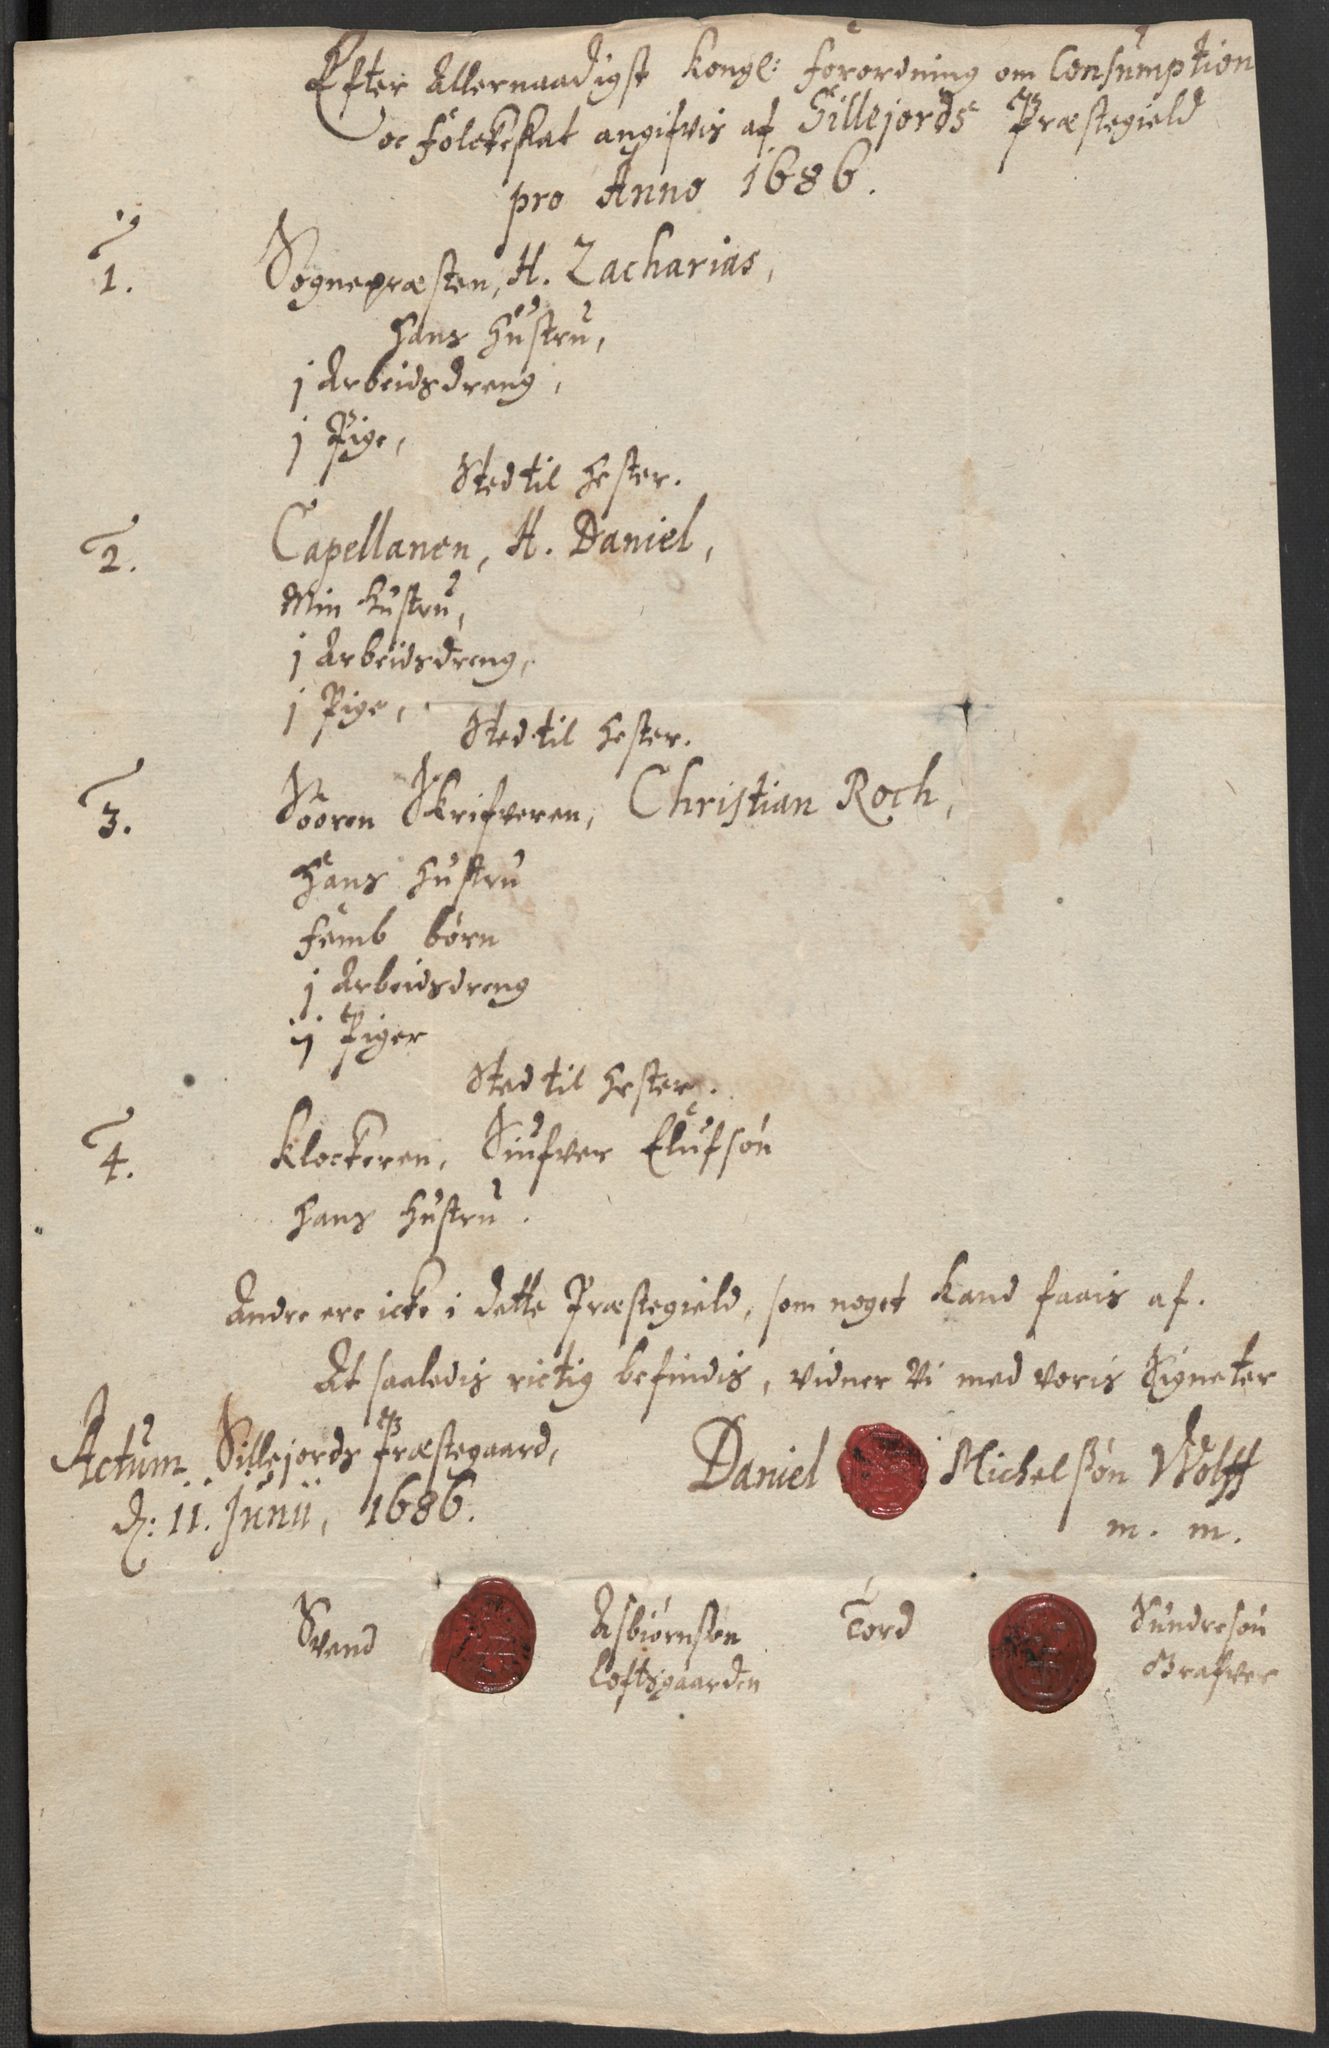 Efter Allernaadigst Kongl: forordning om Consumption
oc folckeskat angifvis af Sillejords Præstegield
pro Anno 1686.
1. Sognepræsten, H. Zacharias,
hans hustru,
j Arbeidsdreng,
j Pige,
Sted til hester.
2. Capellanen, H. Daniel,
Min hustru,
j Arbeidsdreng,
j Pige,
Sted til hester.
3. Sooren Skrifveren, Christian Roch,
hans hustru
femb børn
j Arbeidsdreng
ij Piger
Sted til hester.
4. Klockeren, Siufver Elufsøn
hans hustru.
Andre ere icke i dette Præstegield, som noget kand faais af.
At saaledis rictig befindis, vidner Vi med voris Signeter
Actum Sillejords Præstegaard,
d: 11. Junii, 1686.
Daniel Michelsøn Wolff
m. m.
Svend Asbiørnsøn Tord Sundresøn
Loftsgaarden Grafver